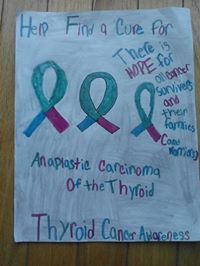 Help Find a Cure For
There is
HOPE for
all cancer
survivers
and
their
families
Anaplastic Carcinoma
Of the Thyroid
Thyroid Cancer Awareness